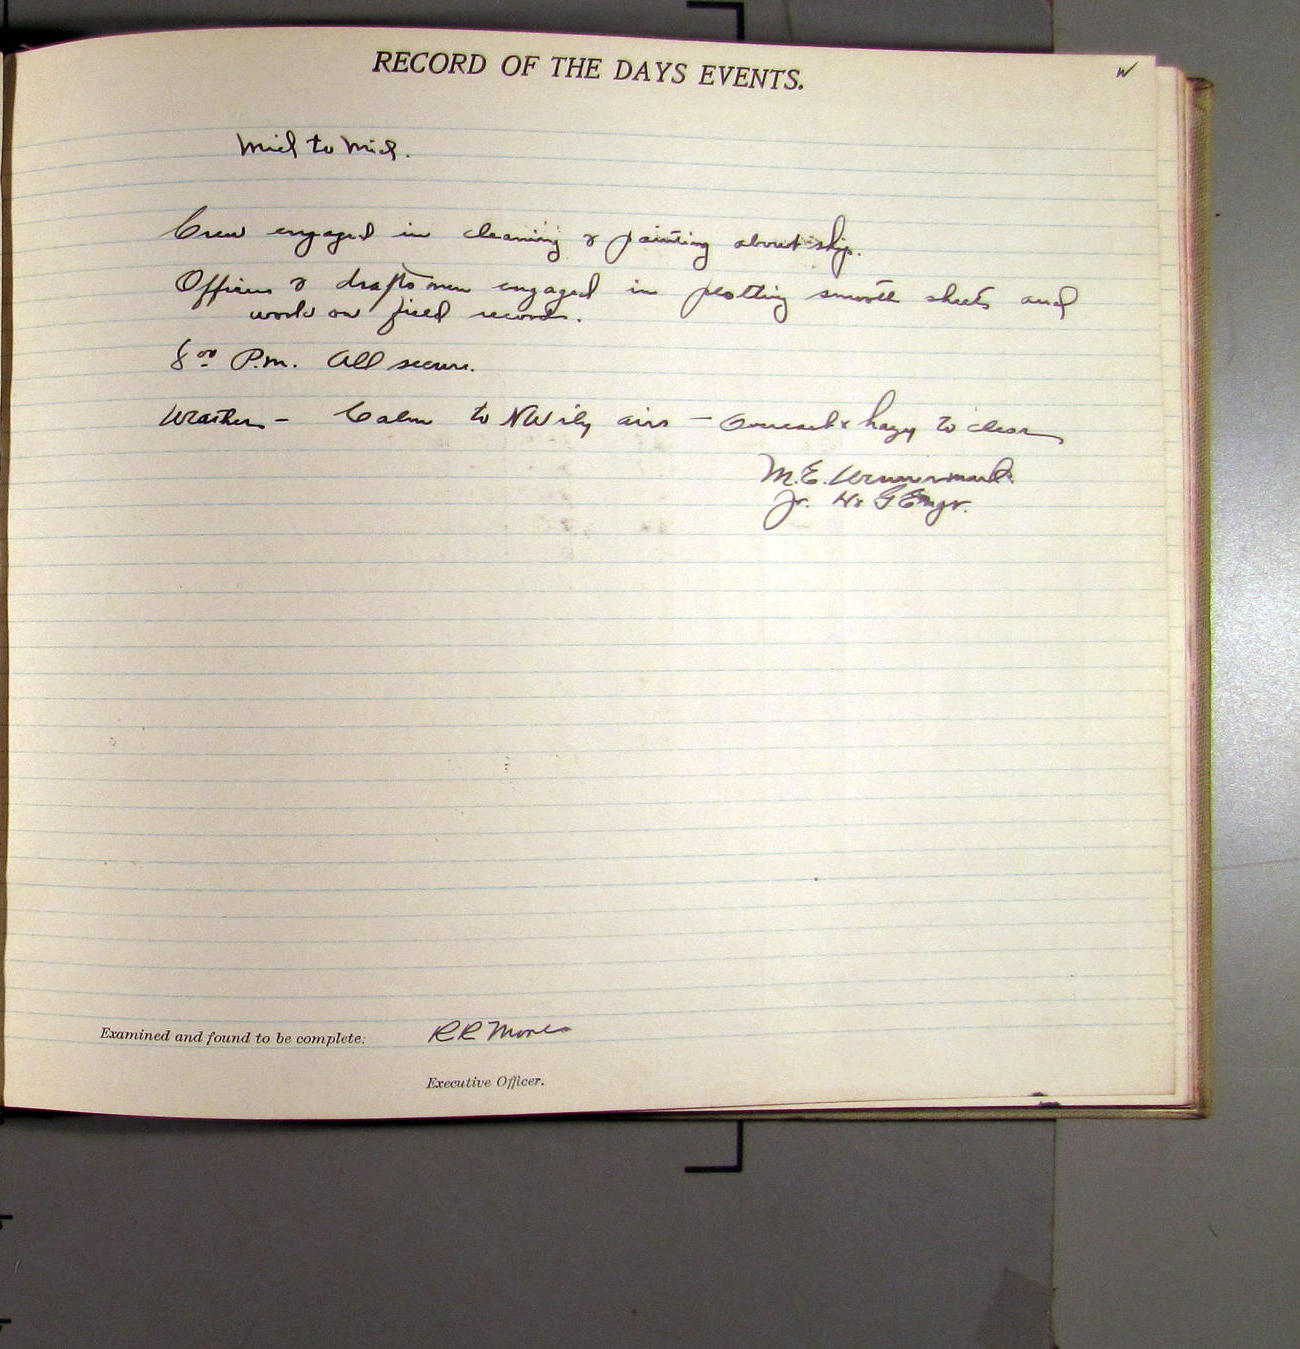 RECORD OF THE DAYS EVENTS.
Mid to Mid.
Crew engaged in cleaning & painting about ship.
Officers & draftsmen engaged in plotting smooth sheets and
work on field records.
8 00 P.M. All secure.
Weather - Calm to NW'ly airs - Overcast & hazy to clear
M.E. Wennermark
Jr. H. & G. Engr.
Examined and found to be complete:
RR Moore
Executive Officer.